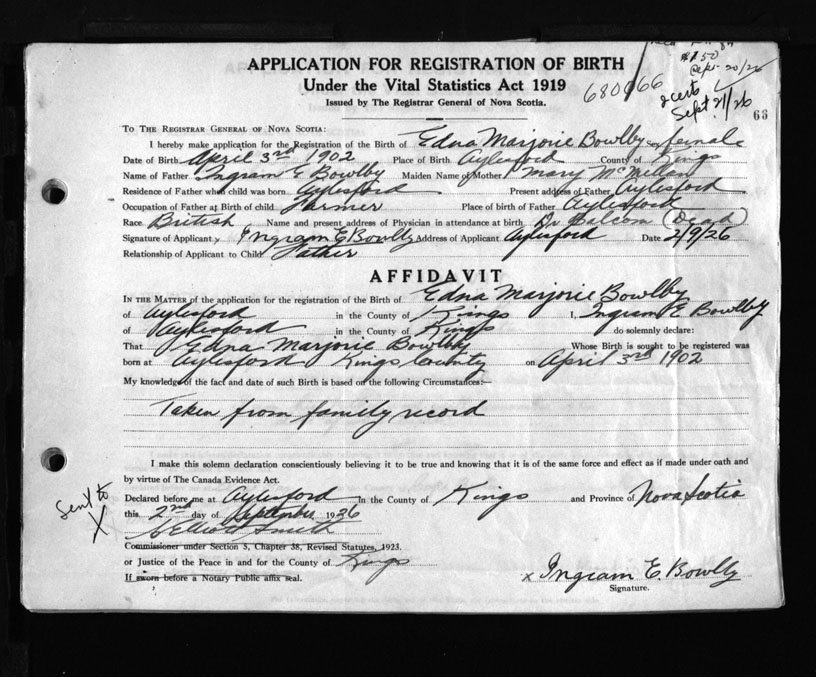 APPLICATION FOR REGISTRATION OF BIRTH
Under the Vital Statistics Act 1919
Issued by The Registrar General of Nova Scotia.
680066
$1.50
Sept 20/26
2 certs
Sept 21/26
66
TO THE REGISTRAR GENERAL OF NOVA SCOTIA:
I hereby make application for the Registration of the Birth of Edna Marjorie Bowlby Sex female
Date of Birth April 3rd 1902 Place of Birth Aylesford County of Kings
Name of Father Ingram E Bowlby Maiden Name of Mother Mary McMillan
Residence of Father when child was born Aylesford Present address of Father Aylesford
Occupation of Father at Birth of child Farmer Place of birth of Father Aylesford
Race British Name and present address of Physician in attendance at birth Dr Balcom (Dead)
Signature of Applicant Ingram E Bowlby Address of Applicant Aylesford Date 2/9/26
Relationship of Applicant to Child Father
AFFIDAVIT
IN THE MATTER of the application for the registration of the Birth of Edna Marjorie Bowlby
of Aylesford in the County of Kings I, Ingram E Bowlby
of Aylesford in the County of Kings do solemnly declare:
That Edna Marjorie Bowlby Whose Birth is sought to be registered was
born at Aylesford Kings County on April 3rd 1902
My knowledge of the fact and date of such Birth is based on the following Circumstances:—
Taken from family record
I make this solemn declaration conscientiously believing it to be true and knowing that it is of the same force and effect as if made under oath and
by virtue of The Canada Evidence Act.
Sent to
X
Declared before me at Aylesford in the County of Kings and Province of Nova Scotia
this 2nd day of September 1926
Elliott Smith
Commissioner under Section 3, Chapter 38, Revised Statutes, 1923.
or Justice of the Peace in and for the County of Kings
If sworn before a Notary Public affix seal.
x Ingram E. Bowlby
Signature.